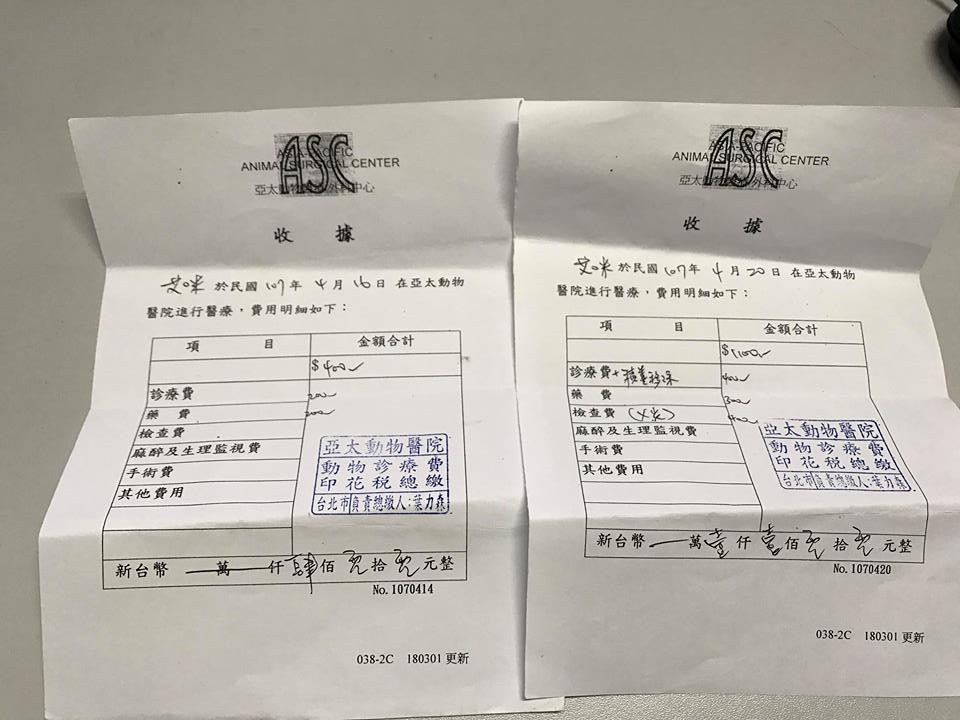 ASC
ASIA-PACIFIC
ANIMAL SURGICAL CENTER
亞太動物外科中心
收據
艾咪 於民國 107 年 4 月 16 日 在亞太動物
醫院進行醫療，費用明細如下：
項目 金額合計
$400
診療費 200
藥費 200
檢查費
麻醉及生理監視費
手術費
其他費用
亞太動物醫院
動物診療費
印花稅總繳
台北市負責總繳人:葉力森
新台幣 萬 仟 肆 佰 零 拾 零 元整
No. 1070414
038-2C 180301 更新
ASC
ASIA-PACIFIC
ANIMAL SURGICAL CENTER
亞太動物外科中心
收據
艾咪 於民國 107 年 4 月 20 日 在亞太動物
醫院進行醫療，費用明細如下：
項目 金額合計
$1100
診療費+ 400
藥費 300
檢查費 (X光) 400
麻醉及生理監視費
手術費
其他費用
亞太動物醫院
動物診療費
印花稅總繳
台北市負責總繳人:葉力森
新台幣 萬 壹 仟 壹 佰 零 拾 零 元整
No. 1070420
038-2C 180301 更新